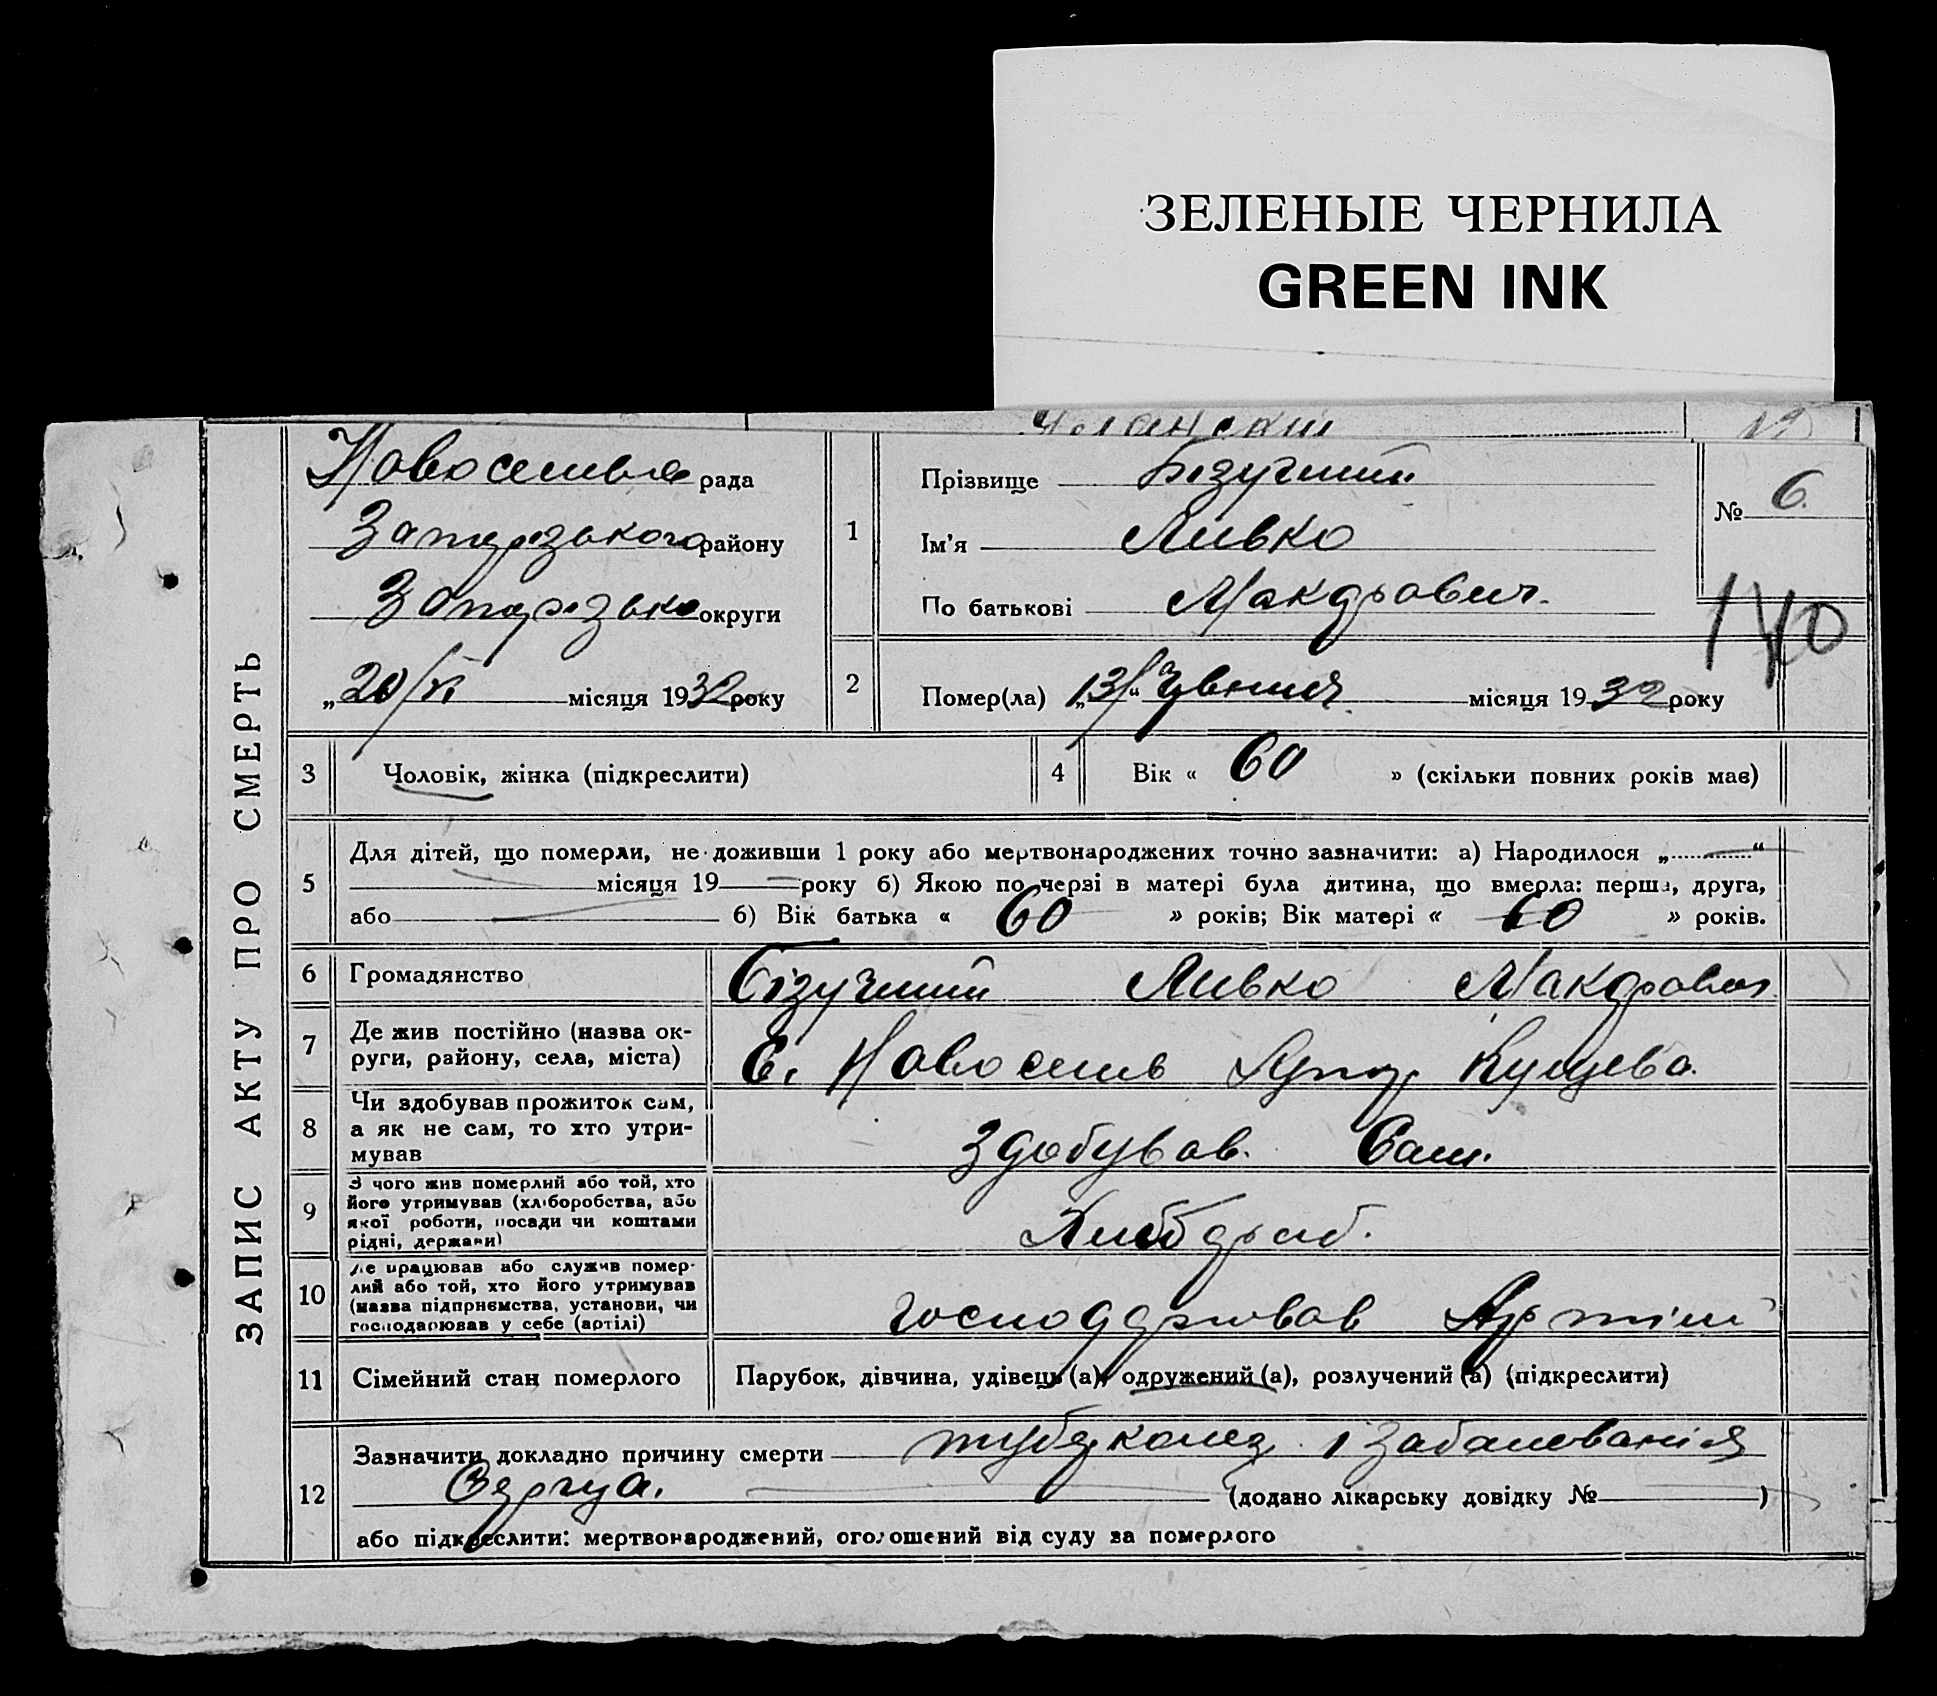 ЗЕЛЕНЫЕ ЧЕРНИЛА
GREEN INK
ЗАПИС АКТУ ПРО СМЕРТЬ
рада
району
округи
„20/VI місяця 1932 року
1
Прізвище Бізучий
Ім'я Ливко
По батькові
№ 6.
140
2
Помер(ла) „13“ Червня місяця 1932 року
3 Чоловік, жінка (підкреслити)
4 Вік « 60 » (скільки повних років має)
5
Для дітей, що померли, не доживши 1 року або мертвонароджених точно зазначити: а) Народилося „ “
місяця 19 року б) Якою по черзі в матері була дитина, що вмерла: перша, друга,
або б) Вік батька « 60 » років; Вік матері « 60 » років.
6 Громадянство Бізучий Ливко
7
Де жив постійно (назва ок-
руги, району, села, міста)
С.
8
Чи здобував прожиток сам,
а як не сам, то хто утри-
мував
Здобував. Сам.
9
З чого жив померлий або той, хто
його утримував (хліборобства, або
якої роботи, посади чи коштами
рідні, держави)
10
Де працював або служив помер-
лий або той, хто його утримував
(назва підприємства, установи, чи
господарював у себе (артілі)
11 Сімейний стан померлого Парубок, дівчина, удівець (а), одружений (а), розлучений (а) (підкреслити)
12
Зазначити докладно причину смерти туберкольоз і
(додано лікарську довідку № )
або підкреслити: мертвонароджений, оголошений від суду за померлого